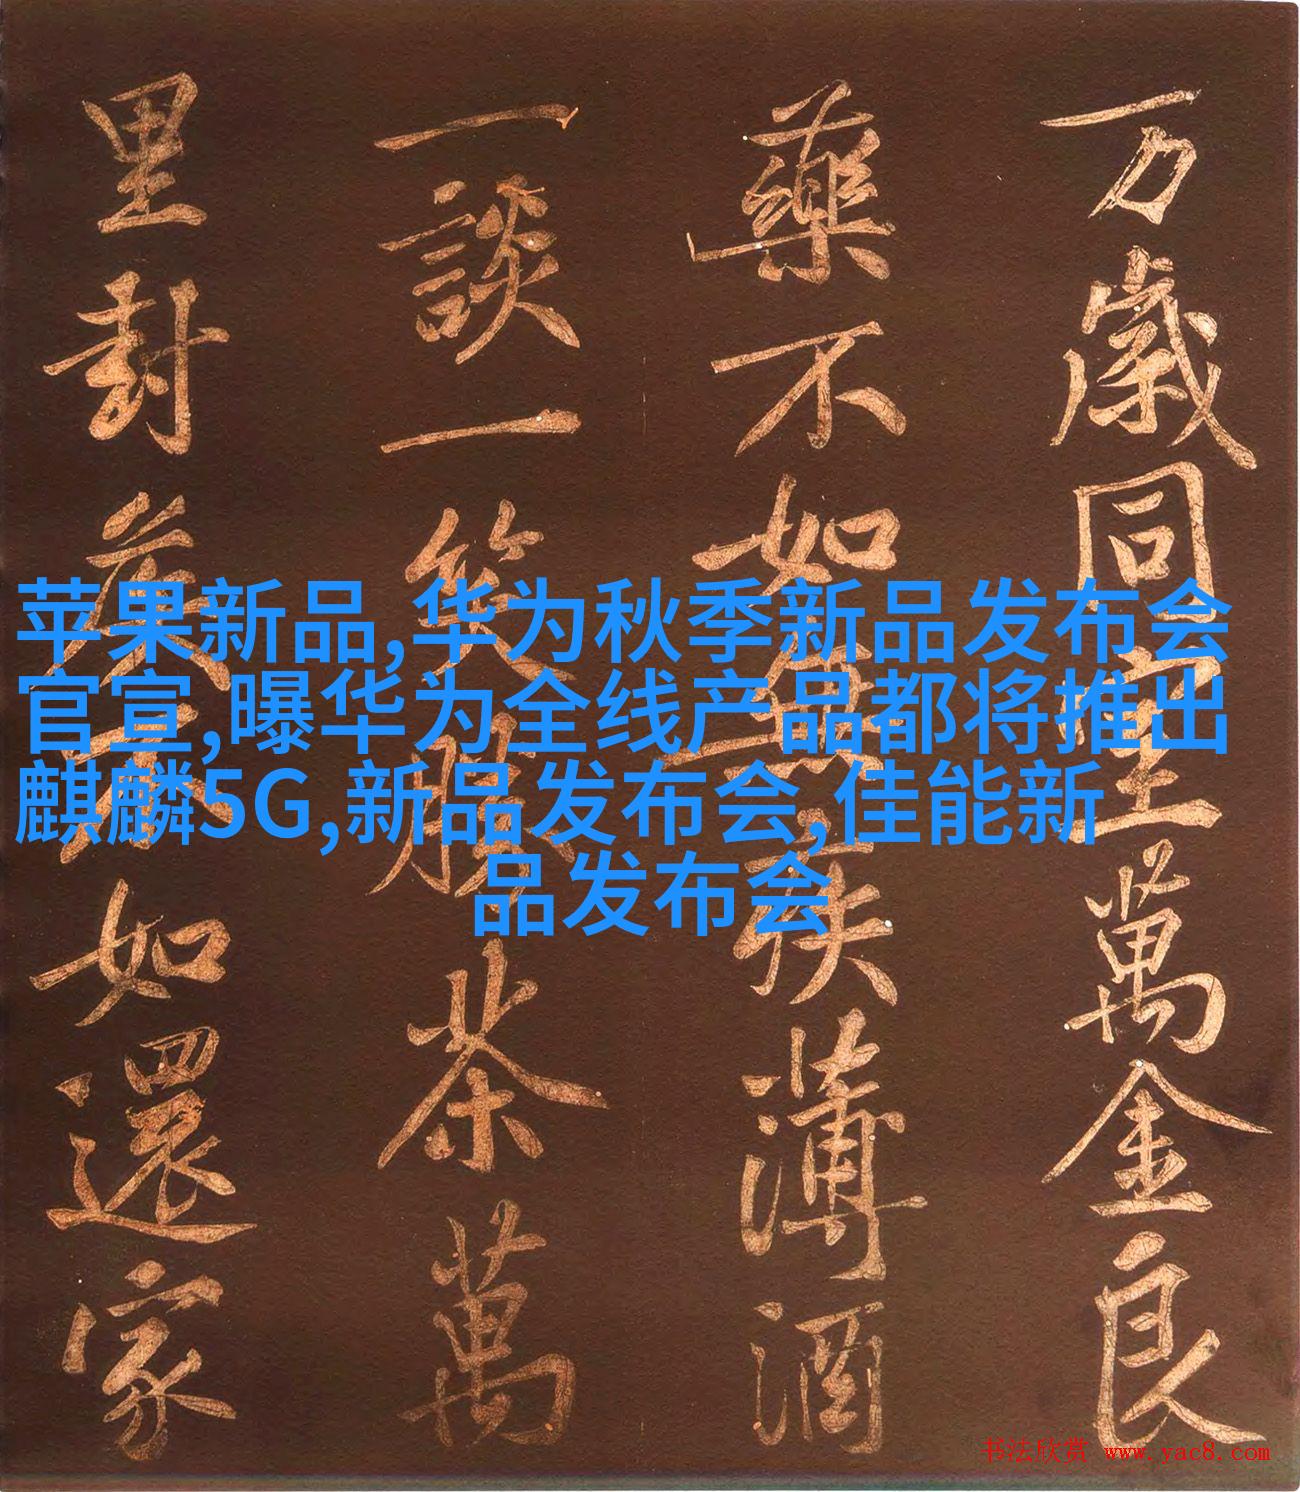 万歲同室萬金良
藥不如無疾薄酒
一談一笑勝茶萬
里封侯不如還家
苹果新品,华为秋季新品发布会
官宣,曝华为全线产品都将推出
麒麟5G,新品发布会,佳能新
品发布会
书法欣赏 www.yac8.com